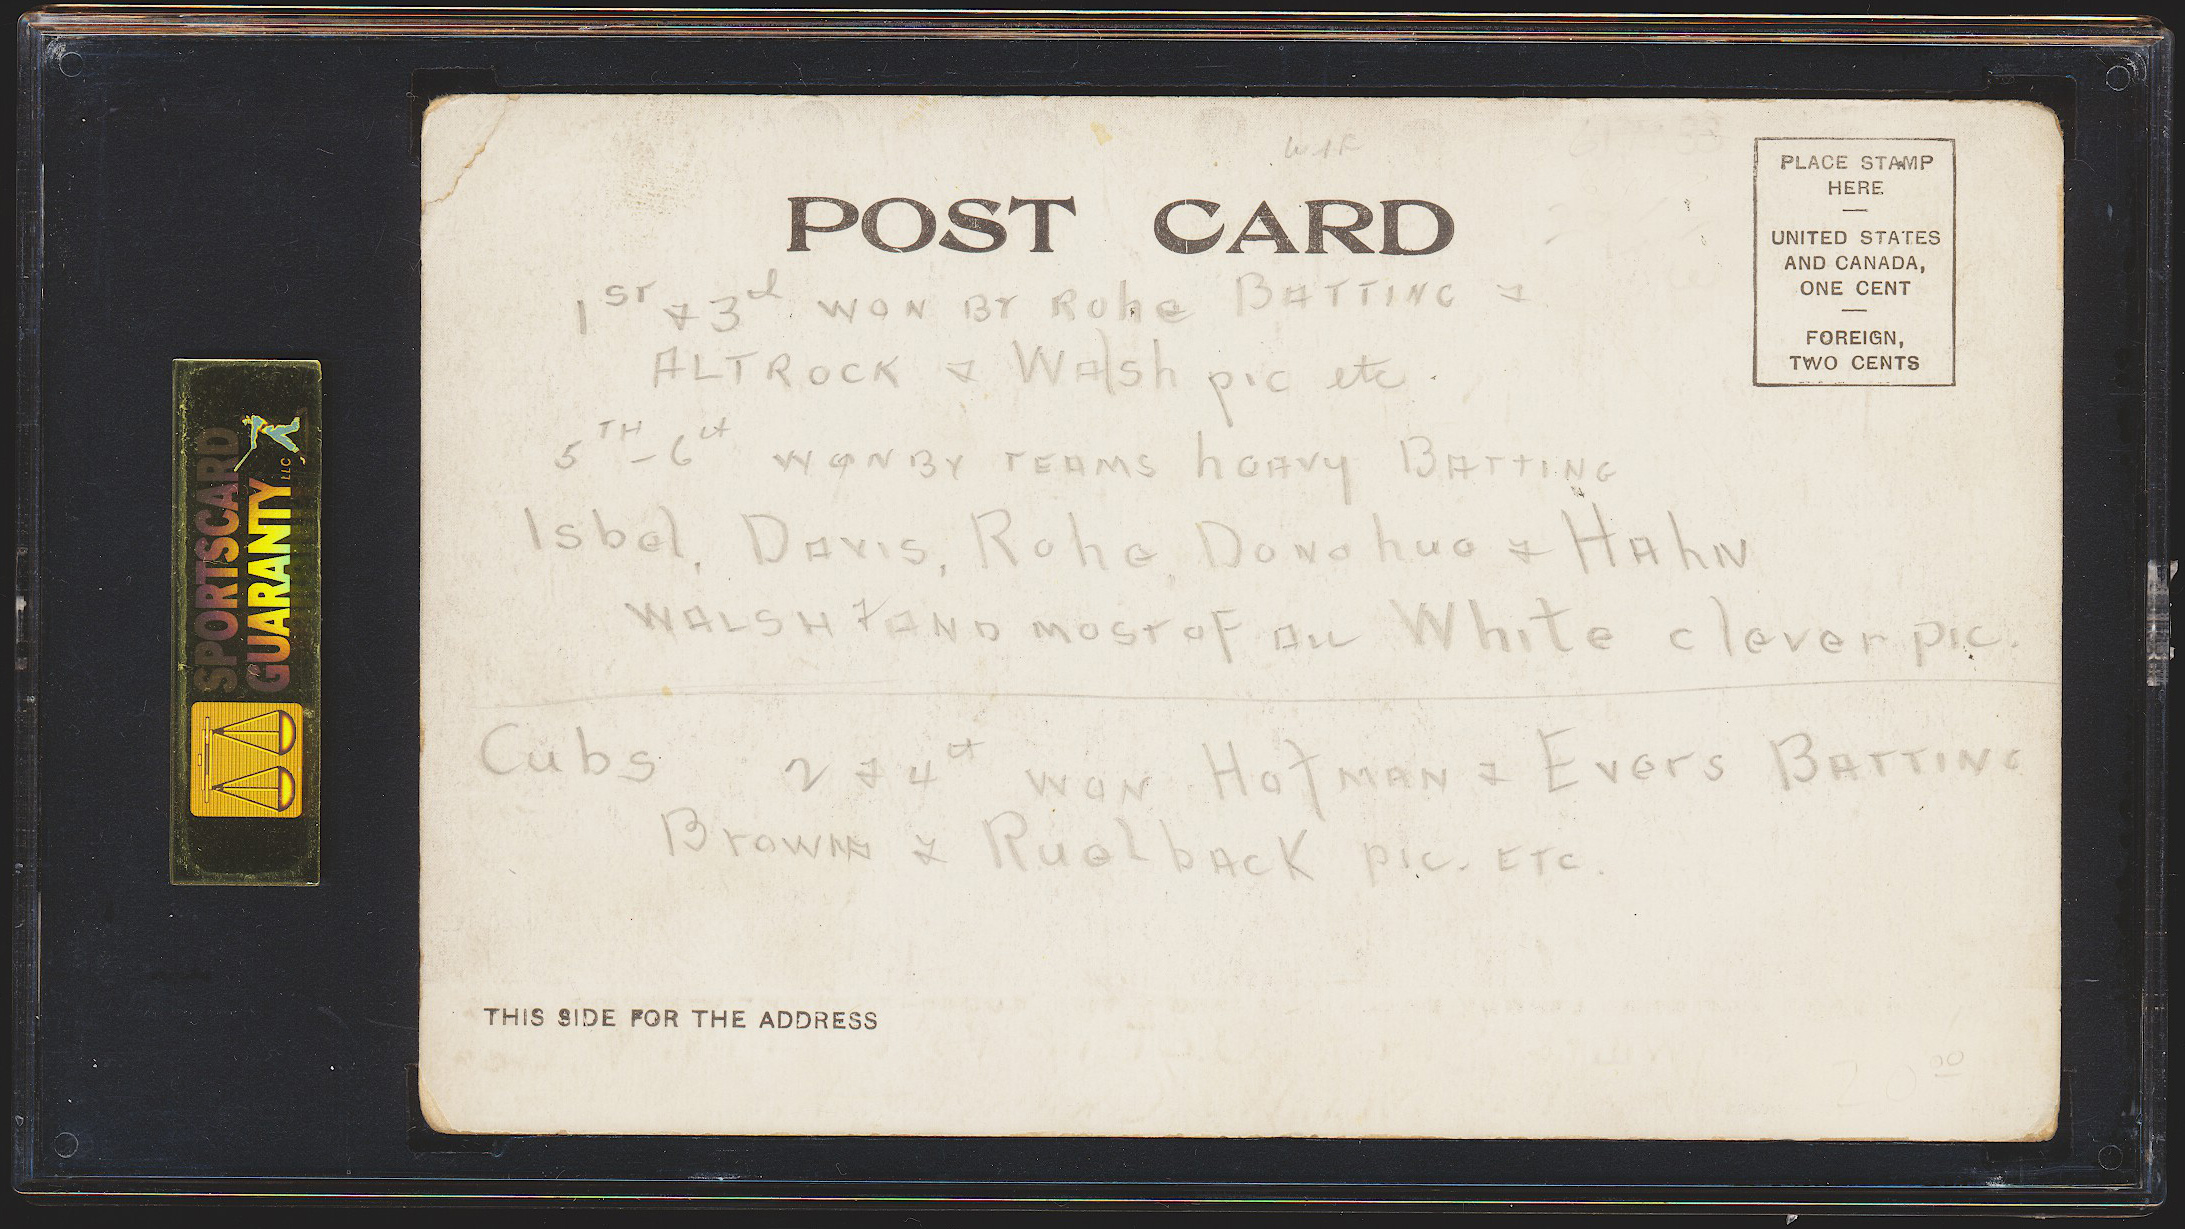 POST CARD
PLACE STAMP
HERE
—
UNITED STATES
AND CANADA,
ONE CENT
—
FOREIGN,
TWO CENTS
1ST & 3d WON BY Rohe BATTING &
ALTROCK & WAlsh pic etc.
5TH - 6th WON BY TEAMS heAvy BATTING
Isbel, DAvIS, Rohe, Donohue & HAhN
WALSH & AND MOST OF ALL White clever pic.
Cubs 2 & 4th WON HofMAN & Evers BATTING
Brown & RuelbAcK pic. ETC.
THIS SIDE FOR THE ADDRESS
SPORTSCARD
GUARANTY LLC